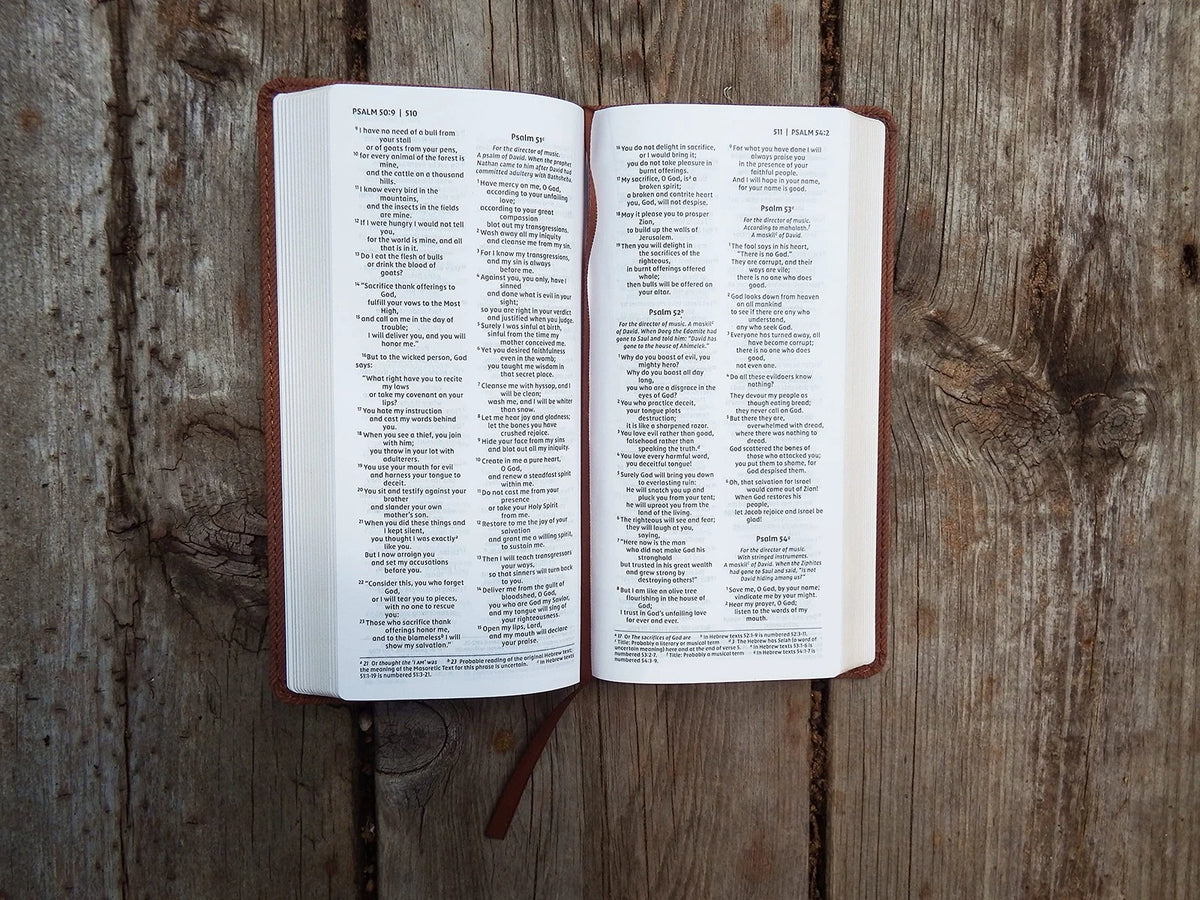 PSALM 50:9 | 510
9 I have no need of a bull from
your stall
or of goats from your pens,
10 for every animal of the forest is
mine,
and the cattle on a thousand
hills.
11 I know every bird in the
mountains,
and the insects in the fields
are mine.
12 If I were hungry I would not tell
you,
for the world is mine, and all
that is in it.
13 Do I eat the flesh of bulls
or drink the blood of
goats?
14 "Sacrifice thank offerings to
God,
fulfill your vows to the Most
High,
15 and call on me in the day of
trouble;
I will deliver you, and you will
honor me."
16 But to the wicked person, God
says:
"What right have you to recite
my laws
or take my covenant on your
lips?
17 You hate my instruction
and cast my words behind
you.
18 When you see a thief, you join
with him;
you throw in your lot with
adulterers.
19 You use your mouth for evil
and harness your tongue to
deceit.
20 You sit and testify against your
brother
and slander your own
mother's son.
21 When you did these things and
I kept silent,
you thought I was exactly a
like you.
But I now arraign you
and set my accusations
before you.
22 "Consider this, you who forget
God,
or I will tear you to pieces,
with no one to rescue
you:
23 Those who sacrifice thank
offerings honor me,
and to the blameless b I will
show my salvation."
Psalm 51 c
For the director of music.
A psalm of David. When the prophet
Nathan came to him after David had
committed adultery with Bathsheba.
1 Have mercy on me, O God,
according to your unfailing
love;
according to your great
compassion
blot out my transgressions.
2 Wash away all my iniquity
and cleanse me from my sin.
3 For I know my transgressions,
and my sin is always
before me.
4 Against you, you only, have I
sinned
and done what is evil in your
sight;
so you are right in your verdict
and justified when you judge.
5 Surely I was sinful at birth,
sinful from the time my
mother conceived me.
6 Yet you desired faithfulness
even in the womb;
you taught me wisdom in
that secret place.
7 Cleanse me with hyssop, and I
will be clean;
wash me, and I will be whiter
than snow.
8 Let me hear joy and gladness;
let the bones you have
crushed rejoice.
9 Hide your face from my sins
and blot out all my iniquity.
10 Create in me a pure heart,
O God,
and renew a steadfast spirit
within me.
11 Do not cast me from your
presence
or take your Holy Spirit
from me.
12 Restore to me the joy of your
salvation
and grant me a willing spirit,
to sustain me.
13 Then I will teach transgressors
your ways,
so that sinners will turn back
to you.
14 Deliver me from the guilt of
bloodshed, O God,
you who are God my Savior,
and my tongue will sing of
your righteousness.
15 Open my lips, Lord,
and my mouth will declare
your praise.
a 21 Or thought the 'I AM' was b 23 Probable reading of the original Hebrew text;
the meaning of the Masoretic Text for this phrase is uncertain. c In Hebrew texts
51:1-19 is numbered 51:3-21.
511 | PSALM 54:2
16 You do not delight in sacrifice,
or I would bring it;
you do not take pleasure in
burnt offerings.
17 My sacrifice, O God, is a a
broken spirit;
a broken and contrite heart
you, God, will not despise.
18 May it please you to prosper
Zion,
to build up the walls of
Jerusalem.
19 Then you will delight in
the sacrifices of the
righteous,
in burnt offerings offered
whole;
then bulls will be offered on
your altar.
Psalm 52 b
For the director of music. A maskil c
of David. When Doeg the Edomite had
gone to Saul and told him: "David has
gone to the house of Ahimelek."
1 Why do you boast of evil, you
mighty hero?
Why do you boast all day
long,
you who are a disgrace in the
eyes of God?
2 You who practice deceit,
your tongue plots
destruction;
it is like a sharpened razor.
3 You love evil rather than good,
falsehood rather than
speaking the truth. d
4 You love every harmful word,
you deceitful tongue!
5 Surely God will bring you down
to everlasting ruin:
He will snatch you up and
pluck you from your tent;
he will uproot you from the
land of the living.
6 The righteous will see and fear;
they will laugh at you,
saying,
7 "Here now is the man
who did not make God his
stronghold
but trusted in his great wealth
and grew strong by
destroying others!"
8 But I am like an olive tree
flourishing in the house of
God;
I trust in God's unfailing love
for ever and ever.
9 For what you have done I will
always praise you
in the presence of your
faithful people.
And I will hope in your name,
for your name is good.
Psalm 53 e
For the director of music.
According to mahalath. f
A maskil c of David.
1 The fool says in his heart,
"There is no God."
They are corrupt, and their
ways are vile;
there is no one who does
good.
2 God looks down from heaven
on all mankind
to see if there are any who
understand,
any who seek God.
3 Everyone has turned away, all
have become corrupt;
there is no one who does
good,
not even one.
4 Do all these evildoers know
nothing?
They devour my people as
though eating bread;
they never call on God.
5 But there they are,
overwhelmed with dread,
where there was nothing to
dread.
God scattered the bones of
those who attacked you;
you put them to shame, for
God despised them.
6 Oh, that salvation for Israel
would come out of Zion!
When God restores his
people,
let Jacob rejoice and Israel be
glad!
Psalm 54 g
For the director of music.
With stringed instruments.
A maskil c of David. When the Ziphites
had gone to Saul and said, "Is not
David hiding among us?"
1 Save me, O God, by your name;
vindicate me by your might.
2 Hear my prayer, O God;
listen to the words of my
mouth.
a 17 Or The sacrifices of God are b In Hebrew texts 52:1-9 is numbered 52:3-11.
c Title: Probably a literary or musical term d 3 The Hebrew has Selah (a word of
uncertain meaning) here and at the end of verse 5. e In Hebrew texts 53:1-6 is
numbered 53:2-7. f Title: Probably a musical term g In Hebrew texts 54:1-7 is
numbered 54:3-9.